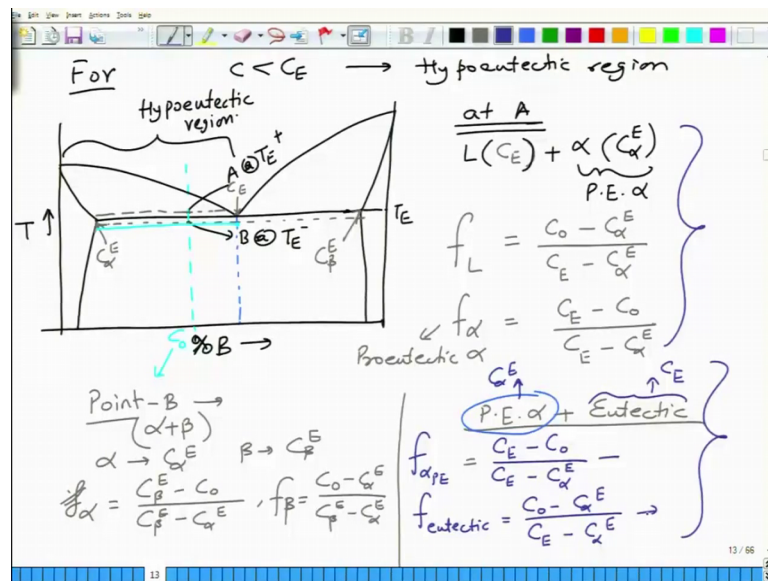 File Edit View Insert Actions Tools Help
B I
For C < C_E → Hypoeutectic region
Hypoeutectic
region.
A @ T_E^+
C_E
T ↑
T_E
B @ T_E^-
C_α^E
C_β^E
C_0 %B →
at A
L(C_E) + α (C_α^E)
P.E. α
f_L = (C_0 - C_α^E) / (C_E - C_α^E)
f_α = (C_E - C_0) / (C_E - C_α^E)
Proeutectic α
Point-B →
(α+β)
α → C_α^E β → C_β^E
f_α = (C_β^E - C_0) / (C_β^E - C_α^E) , f_β = (C_0 - C_α^E) / (C_β^E - C_α^E)
C_α^E C_E
P.E. α + Eutectic
f_αPE = (C_E - C_0) / (C_E - C_α^E) —
f_eutectic = (C_0 - C_α^E) / (C_E - C_α^E) →
13 / 66
13